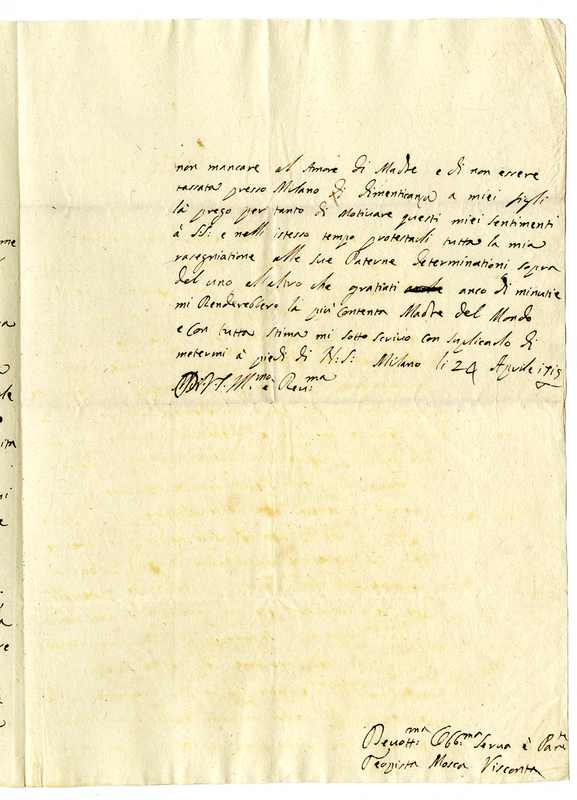 non mancare al Amore di Madre e di non essere
tassata presso Milano di dimenticanza a miei figli
là prego per tanto di Motivare questi miei sentimenti
à SS: e nell istesso tempo protestarli tutta la mia
rasegniatione alle sue Paterne determinationi sopra
del uno all altro che gratiati anco di minutie
mi Renderebbero là più Contenta Madre del Mondo
e Con tutta stima mi sotto scrivo con suplicarlo di
metermi à piedi di N: S: Milano li 24 Aprile 1715
Di V. S. Ill.ma e Reu:ma
Deuott:ma Obb:ma Serua è Par:te
Teopista Mosca Visconta